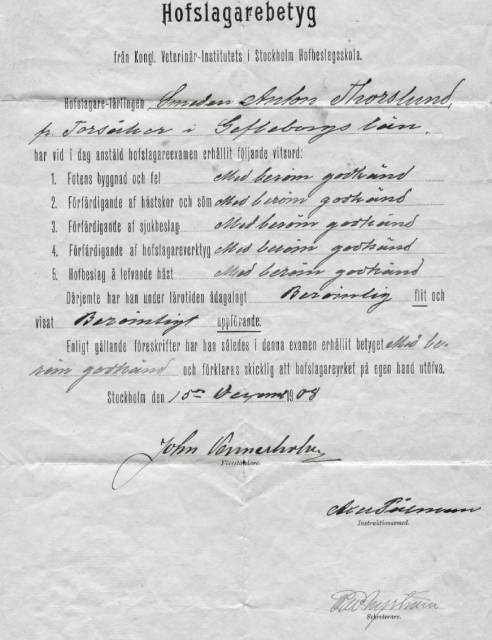 Hofslagarebetyg
från Kongl. Veterinär-Institutets i Stockholm Hofbeslagsskola.
Hofslagare-lärlingen Smeden Anton Thorslund,
fr. Torsåker i Gefleborgs län,
har vid i dag anstäld hofslagareexamen erhållit följande vitsord:
1. Fotens byggnad och fel Med beröm godkänd
2. Förfärdigande af hästskor och söm Med beröm godkänd
3. Förfärdigande af sjukbeslag Med beröm godkänd
4. Förfärdigande af hofslagareverktyg Med beröm godkänd
5. Hofbeslag å lefvande häst Med beröm godkänd
Därjemte har han under lärotiden ådagalagt Berömlig flit och
visat Berömligt uppförande.
Enligt gällande föreskrifter har han således i denna examen erhållit betyget Med be-
röm godkänd och förklaras skicklig att hofslagareyrket på egen hand utöfva.
Stockholm den 15 1908
John Vennerholm
Föreståndare.
Instruktionssmed.
Sekreterare.